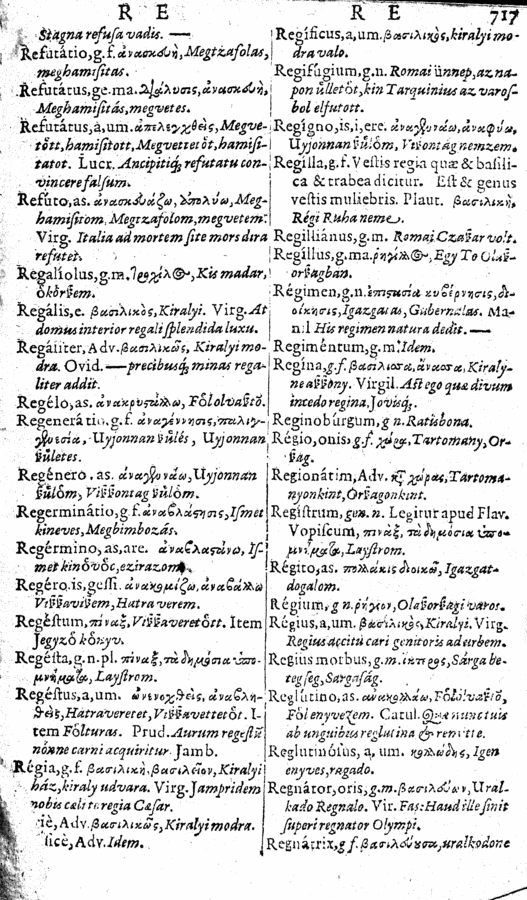 R E
Stagna refusa vadis. —
Refutâtio, g.f. ἀνασκευὴ, Megtzafolas,
meghamisitas.
Refutâtus, ge.ma. ἀνασκευὴ,
Meghamisitás, megvetes.
Refutâtus, a, um. ἀπελεγχθεὶς, Megve-
tȯtt, hamisitott, Megvettetȯt, hamisi-
tatot. Lucr. Ancipitiq́; refutatu con-
vincere falsum.
Refúto, as. ἀνασκευάζω, Meg-
hamisitom, Megtzafolom, megvetem:
Virg. Italia ad mortem site mors dira
refutet.
Regalíolus, g.m. Kis madar,
ȯkȯrſem.
Regâlis, e. βασιλικὸς, Kiralyi. Virg. At
domus interior regali splendida luxu.
Regáliter, Adv. βασιλικῶς, Kiralyi mo-
dra. Ovid. — precibusq́; minas rega-
liter addit.
Regélo, as. Fȯlolvaſtȯ.
Regenerátio, g.f. ἀναγέννησις, παλιγ-
γενεσία, Uyjonnan ſu̇lés, Uyjonnan
ſu̇letes.
Regénero, as. ἀναγεννάω, Uyjonnan
ſu̇lȯm, Viſſontag ſu̇lȯm.
Regerminâtio, g f. ἀναβλάστησις, Ismet
kineves, Megbimbozás.
Regérmino, as, are. ἀναβλαστάνω, Is-
met kindvdȯ, ezirazom.
Regéro, is, gessi. ἀνακομίζω, ἀναβάλλω
Viſſaviſem, Hatra verem.
Regéstum, πίναξ, Viſſaveretȯtt. Item
Jegyzȯ kȯnyv.
Regésta, g.n.pl. πίναξ, τὰ δημόσια ὑπο-
μνήματα, Laystrom.
Regéstus, a, um. ἀναβλη-
θεὶς, Hatra veretet, Viſſavettetȯt. I-
tem Fȯlturas. Prud. Aurum regestũ
nonne carni acquiritur. Jamb.
Régia, g.f. βασιλικὴ, βασιλεῖον, Kiralyi
ház, kiraly udvara. Virg. Jampridem
nobis cæli te regia Cæsar.
iè, Adv. βασιλικῶς, Kiralyi modra.
ficè, Adv. Idem.
R E 717
Regíficus, a, um. βασιλικὸς, kiralyi mo-
dra valo.
Regifúgium, g.n. Romai u̇nnep, az na-
pon u̇lletȯt, kin Tarquinius az varos-
bol elfutott.
Regígno, is, i, ere. ἀναγεννάω, ἀναφύω,
Uyjonnan ſu̇lȯm, Viſontag nemzem.
Regílla, g.f. Vestis regia quæ & basili-
ca & trabea dicitur. Est & genus
vestis muliebris. Plaut. βασιλικὴ,
Régi Ruha neme.
Regilliânus, g.m. Romai Czaſar volt.
Regíllus, g.ma. Egy To Olaſ-
orſagban.
Régimen, g.n. ἐπιστασία κυβέρνησις, δι-
οίκησις, Igazgatas, Gubernalas. Ma-
nil His regimen natura dedit. —
Regiméntum, g.m. Idem.
Regína, g.f. βασίλισσα, ἄνασσα, Kiraly-
ne aſſony. Virgil. Ast ego quæ divum
incedo regina, Jovisq́;
Reginobúrgum, g n. Ratisbona.
Régio, onis. g.f. χώρα, Tartomany, Or-
ſag.
Regionâtim, Adv. κατὰ χώρας, Tartoma-
nyonkint, Orſagonkint.
Regístrum, gen. n. Legitur apud Flav.
Vopiscum, πίναξ, τὰ δημόσια ὑπο-
μνήματα, Laystrom.
Régito, as. πολλάκις διοικῶ, Igazgat-
dogalom.
Régium, g n. ῥήγιον, Olaſorſagi varos.
Régius, a, um. βασιλικὸς, Kiralyi. Virg.
Regius accitu cari genitoris ad urbem.
Regius morbus, g.m. ἴκτερος, Sárga be-
tegseg, Sargaság.
Reglútino, as. ἀνακολλάω, Fȯlolvaſtȯ,
Fȯl enyveʒem. Catul. Quæ nunc tuis
ab unguibus reglutina & remitte.
Reglutinósus, a, um. κολλώδης, Igen
enyves, ragado.
Regnátor, oris, g.m. βασιλεύων, Ural-
kado Regnalo. Vir. Fas: Haud ille sinit
superi regnator Olympi.
Regnátrix, g f. βασιλεύουσα, uralkodone